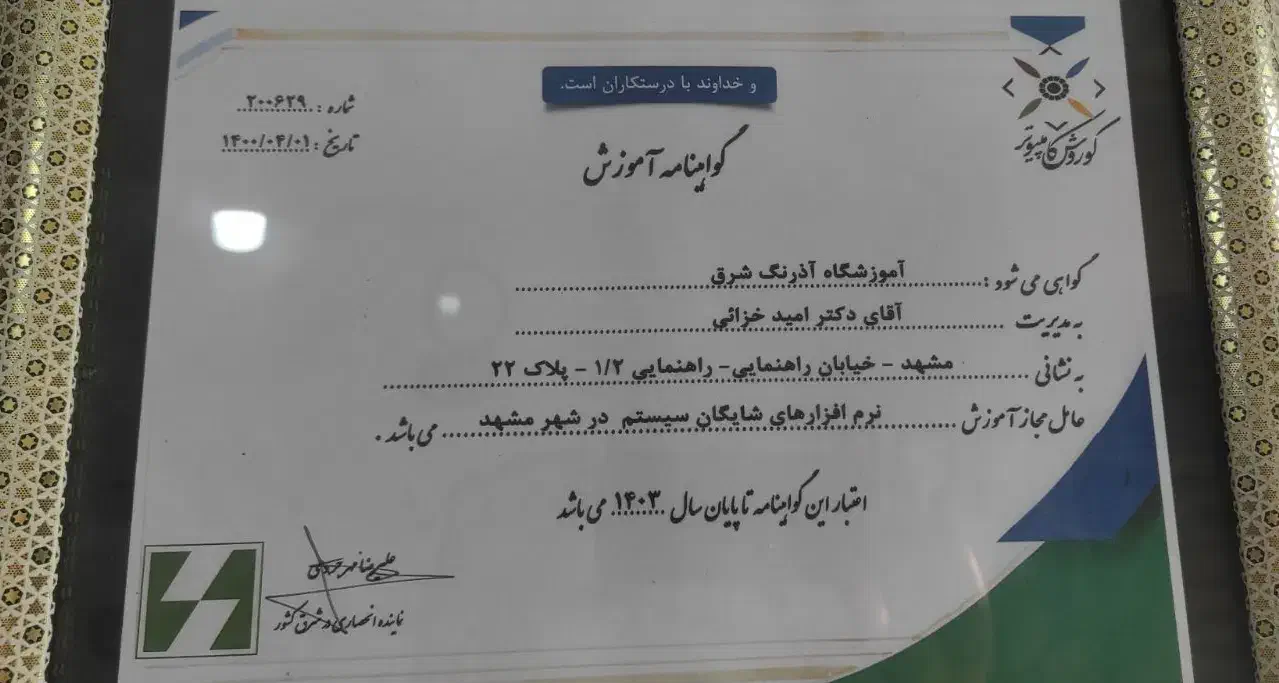 و خداوند با درستکاران است.
کوروش کامپیوتر
شماره : ۲۰۰۶۲۹
تاریخ : ۱۴۰۰/۰۴/۰۱
گواهینامه آموزش
گواهی می شود : آموزشگاه آذرنگ شرق
به مدیریت آقای دکتر امید خزائی
به نشانی مشهد - خیابان راهنمایی- راهنمایی ۱/۲ - پلاک ۲۲
عامل مجاز آموزش نرم افزارهای شایگان سیستم در شهر مشهد می باشد .
اعتبار این گواهینامه تا پایان سال ۱۴۰۳ می باشد
علیرضا
نماینده انحصاری در شرق کشور